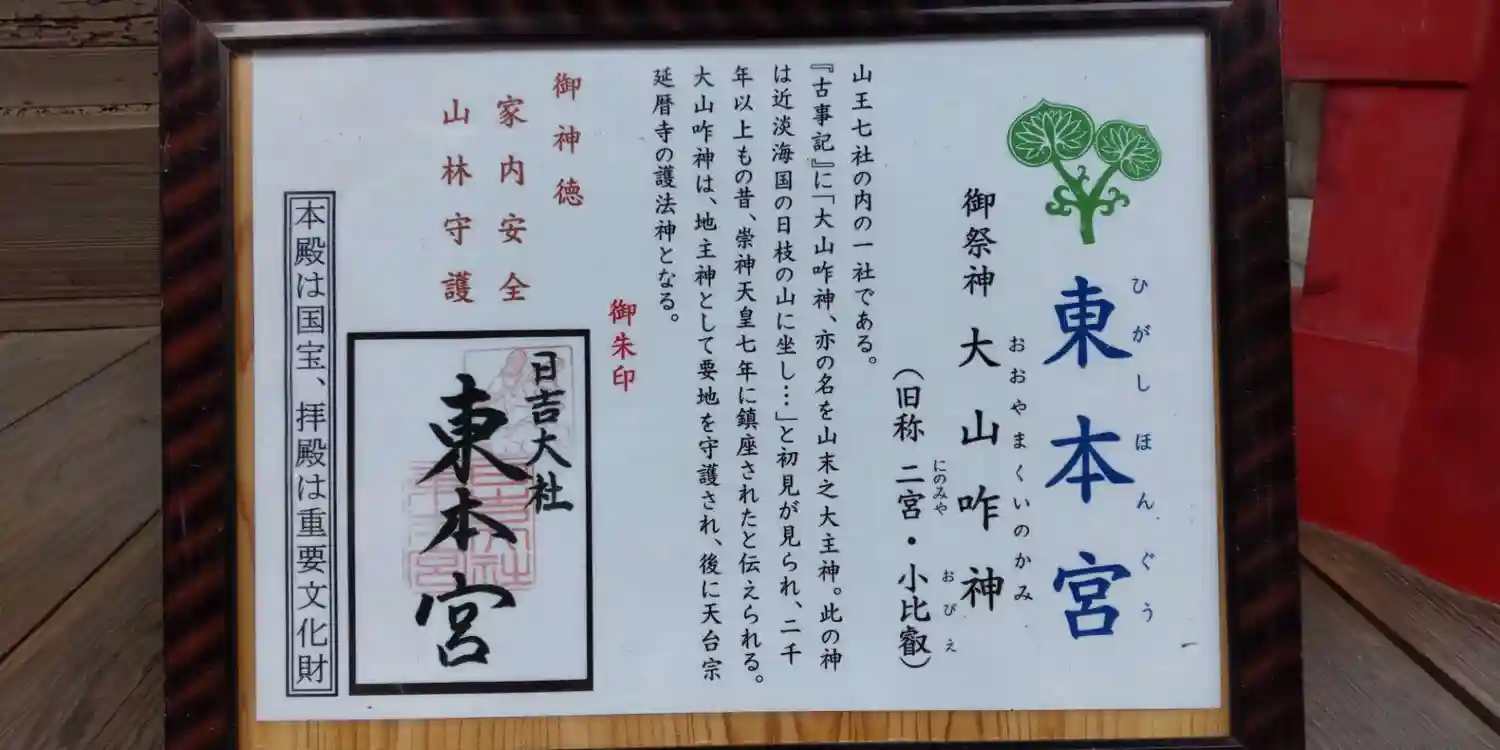 東本宮
ひがしほんぐう
御祭神 大山咋神
おおやまくいのかみ
（旧称 二宮・小比叡）
にのみや おびえ
山王七社の内の一社である。
『古事記』に「大山咋神、亦の名を山末之大主神。此の神
は近淡海国の日枝の山に坐し…」と初見が見られ、二千
年以上もの昔、崇神天皇七年に鎮座されたと伝えられる。
大山咋神は、地主神として要地を守護され、後に天台宗
延暦寺の護法神となる。
御神徳
家内安全
山林守護
御朱印
日吉大社
東本宮
本殿は国宝、拝殿は重要文化財